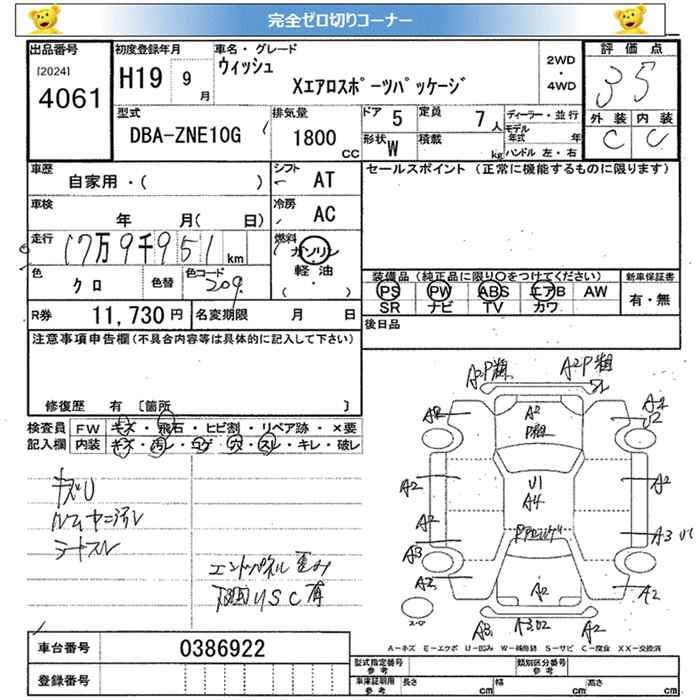 完全ゼロ切りコーナー
出品番号
[2024]
4061
初度登録年月
H19 9月
車名・グレード
ウィッシュ
Xエアロスポーツパッケージ
2WD
・
4WD
評価点
3.5
外装 内装
C C
型式
DBA-ZNE10G
排気量
1800 CC
ドア 5
定員 7人
形状 W
積載 kg
ディーラー・並行
モデル年式 年
ハンドル 左・右
車歴
自家用・( )
シフト AT
車検
年 月( 日)
冷房 AC
走行
17万9千951 km
燃料
ガソリン
軽油
( ・ )
色 クロ
色替
色コード 209
R券 11,730円
名変期限 月 日
セールスポイント (正常に機能するものに限ります)
装備品 (純正品に限り○をつけてください)
新車保証書
PS PW ABS エアB AW
有・無
SR ナビ TV カワ
後日品
注意事項申告欄(不具合内容等は具体的に記入して下さい)
修復歴 有 〔箇所 〕
検査員
記入欄
FW キズ・飛石・ヒビ割・リペア跡・×要
内装 キズ・汚レ・コゲ・穴・スレ・キレ・破レ
キズU
シートスレ
エンドパネル 歪み
下回りSC有
A2P
A2P
A2
U1
A4
A2
A2
A2
A2
A3
A2
A2
A2
A3
A2
A2
A3
A3 U2
A2
スペア
A-キズ E-エクボ U-凹み W-補修跡 S-サビ C-腐食 XX-交換済
車台番号 0386922
登録番号
型式指定番号
参考
類別区分番号
参考
車庫証明用
参考
長さ cm
幅 cm
高さ cm